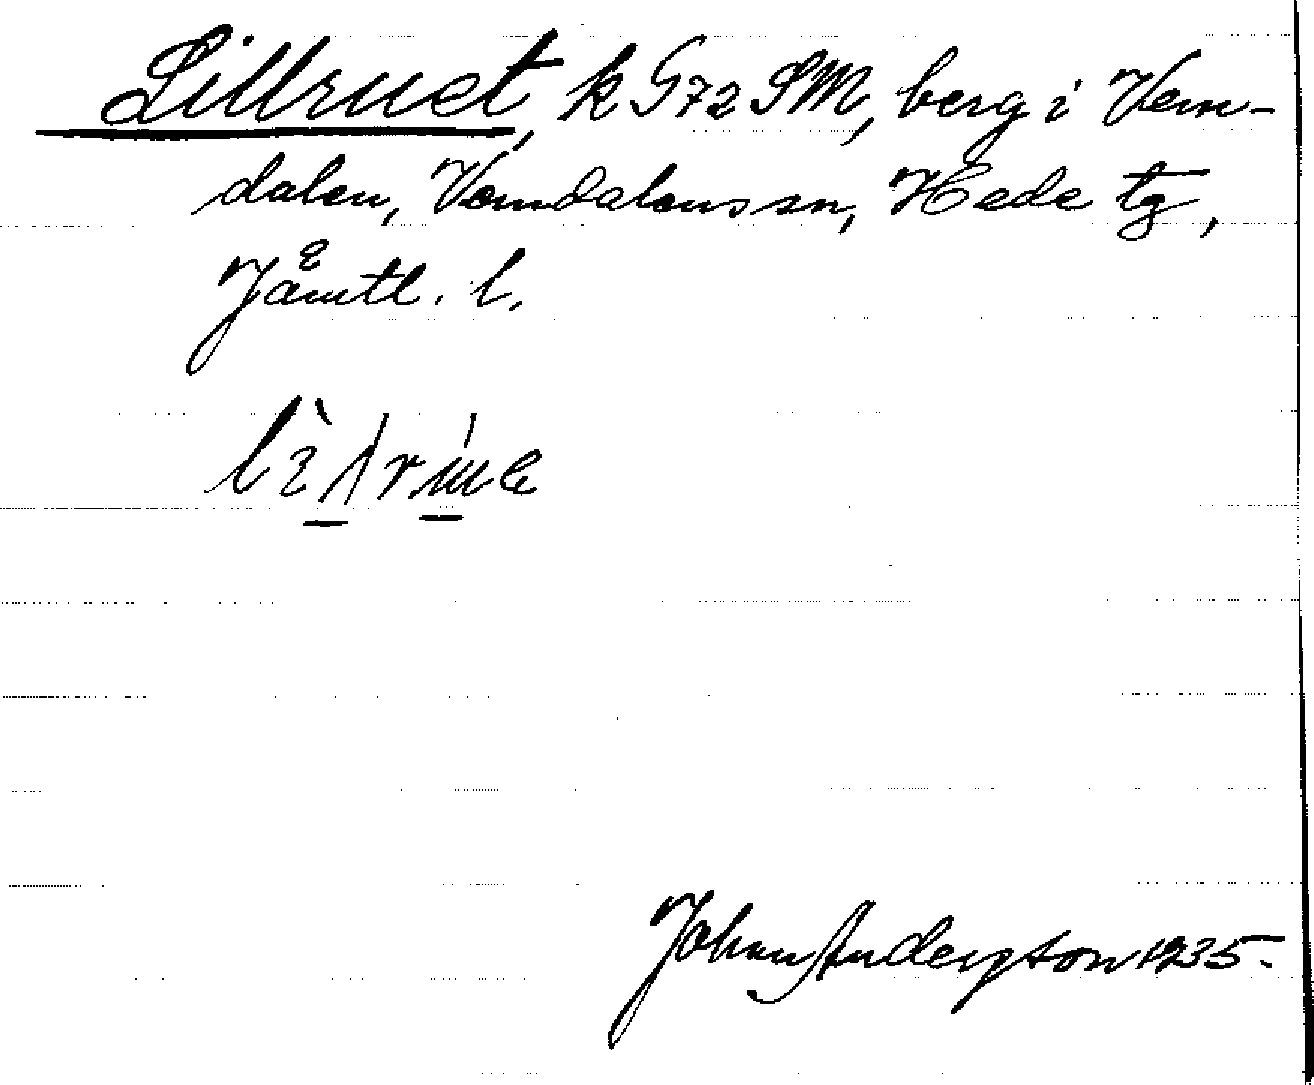 Lillruet, k G72 SM, berg i Vem-
dalen, Vemdalens sn, Hede tg,
Jämtl. l.
Johan Anderson 1935.